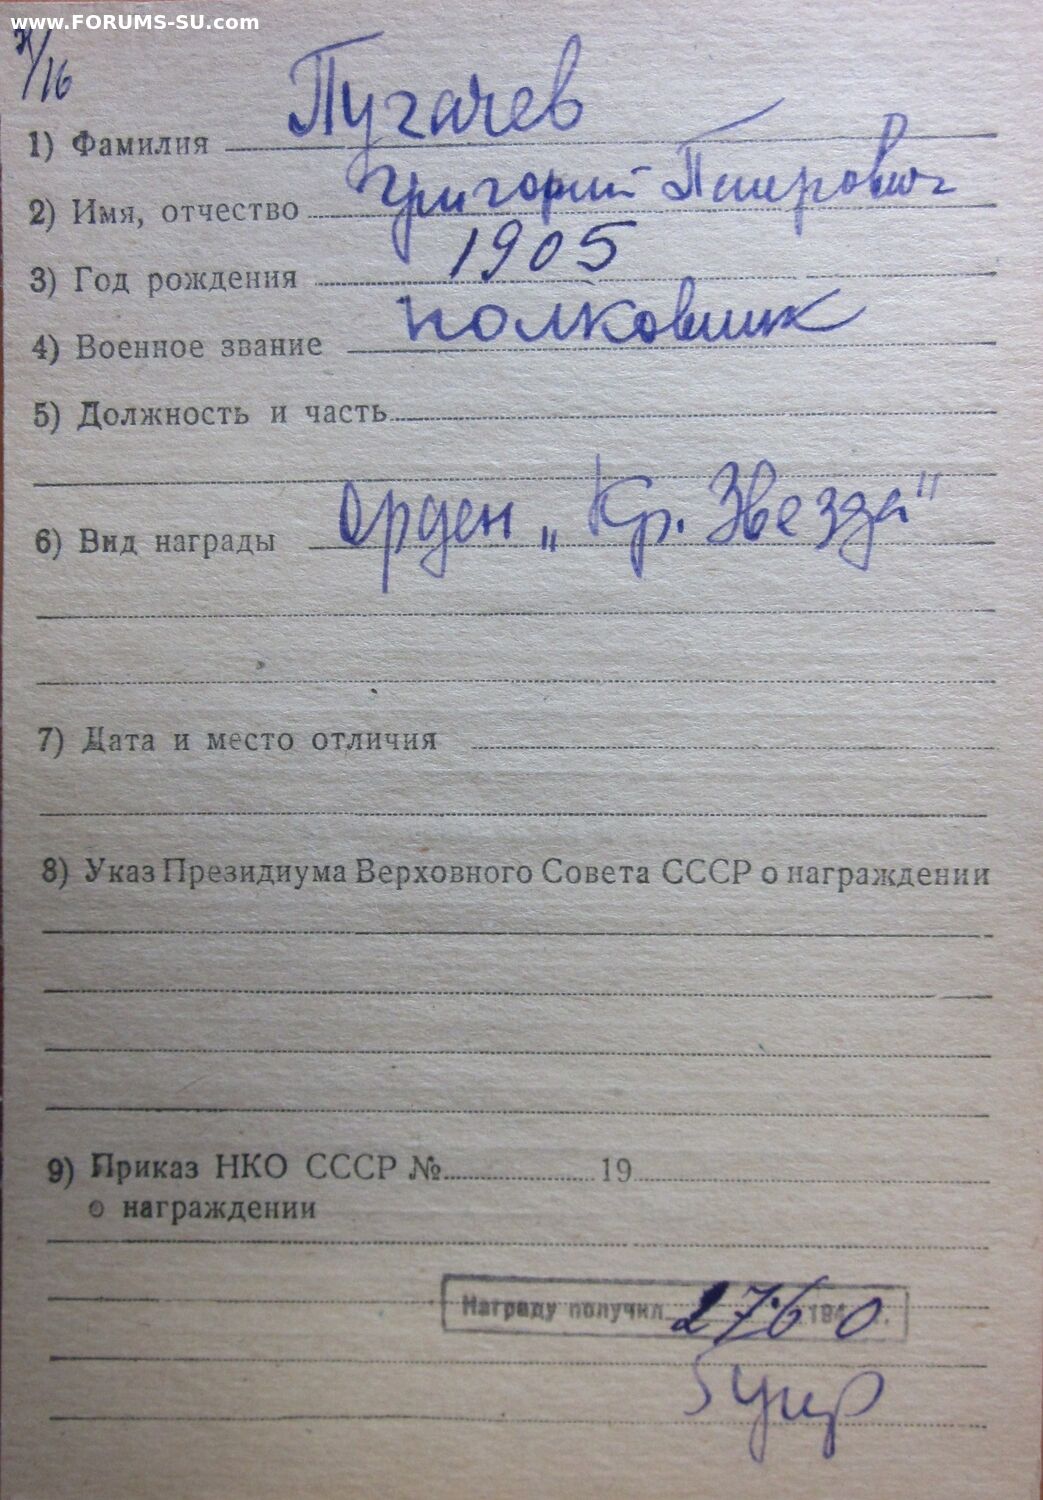 www.FORUMS-SU.com
/16
1) Фамилия Пугачев
2) Имя, отчество Григорий Петрович
3) Год рождения 1905
4) Военное звание полковник
5) Должность и часть
6) Вид награды Орден „Кр. Звезда"
7) Дата и место отличия
8) Указ Президиума Верховного Совета СССР о награждении
9) Приказ НКО СССР № 19
о награждении
Награду получил 194 г.